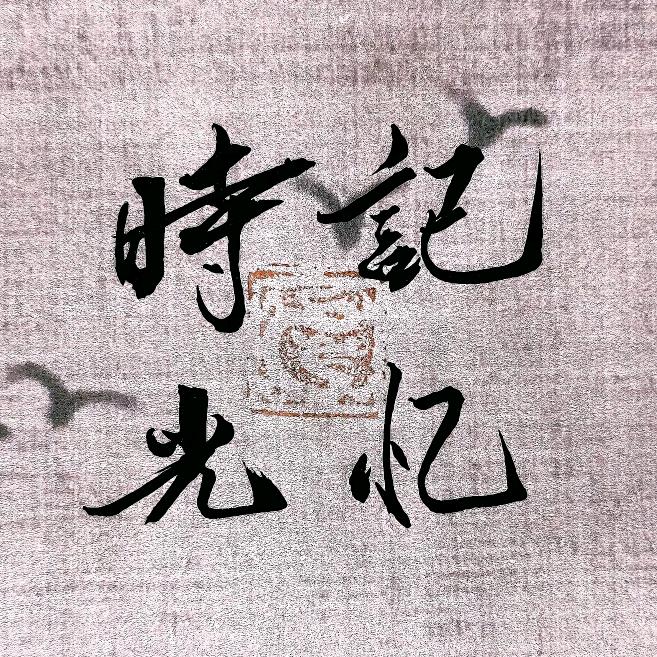 記忆
時光